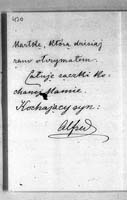 430
Martele, która dzisiaj
rano otrzymałem.
Całuję rączki Ko-
chanej Mamie.
Kochający syn:
Alfred